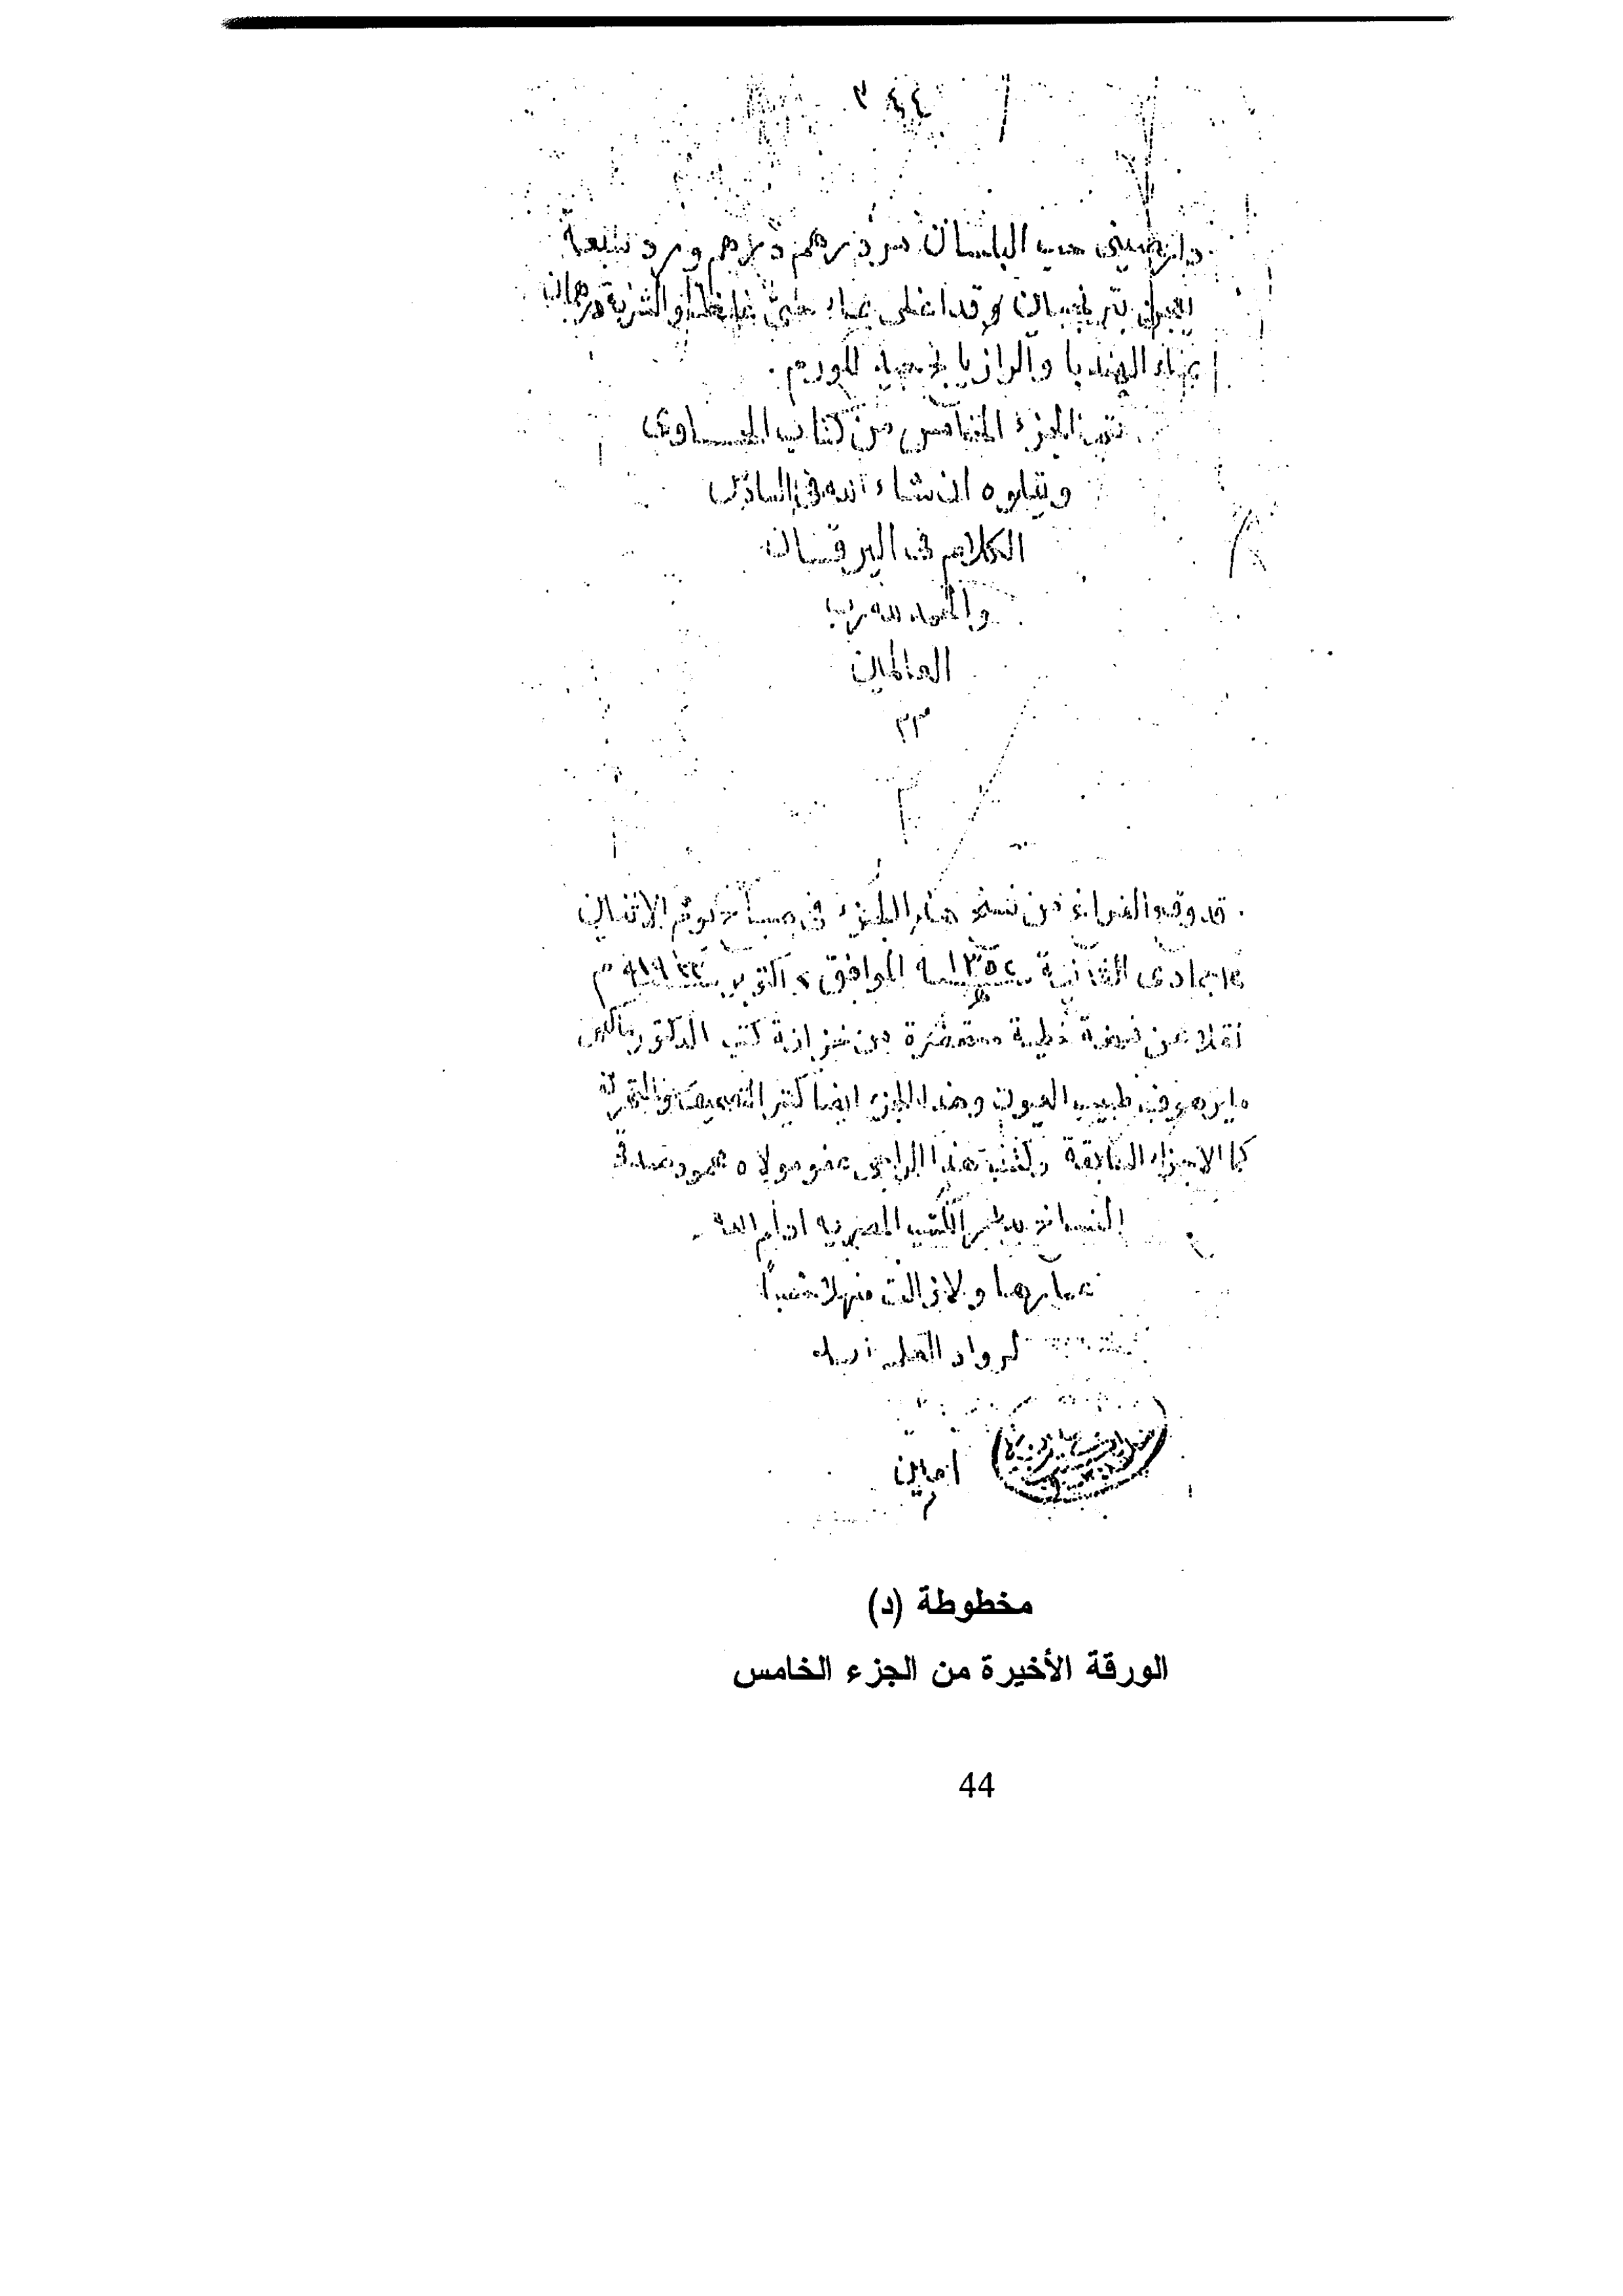 ٣٤٤
دارصينى حب البلسان مر درهم درهم ورد سبعة
يعجن بترنجبين وقد اغلى بماء حتى غلظ والشربة درهمان
بماء الهندبا والرازيانج جيد للورم.
تم الجزء الخامس من كتاب الحـاوى
ويتلوه ان شاء الله فى السادس
الكلام فى اليرقـان
والحمد لله رب
العالمين
٣٣
قد وقع الفراغ من نسخ هذا الجزء فى مساء يوم الاثنين
جمادى الثانية ١٣٥٢ـه الموافق اكتوبر م
نقلا من نسخة خطية مستحضرة من خزانة كتب الدكتور ماكس
مايرهوف طبيب العيون وهذا الجزء ايضا كثير التصحيف والتحريف
كما الاجزاء السابقة وكتبه هذا الراجى عفو مولاه محمود صدقى
النساخ بدار الكتب المصريه ادام الله
عمارها ولا زالت منهلا عذبا
لرواد العلم
امين
مخطوطة (د)
الورقة الأخيرة من الجزء الخامس
44